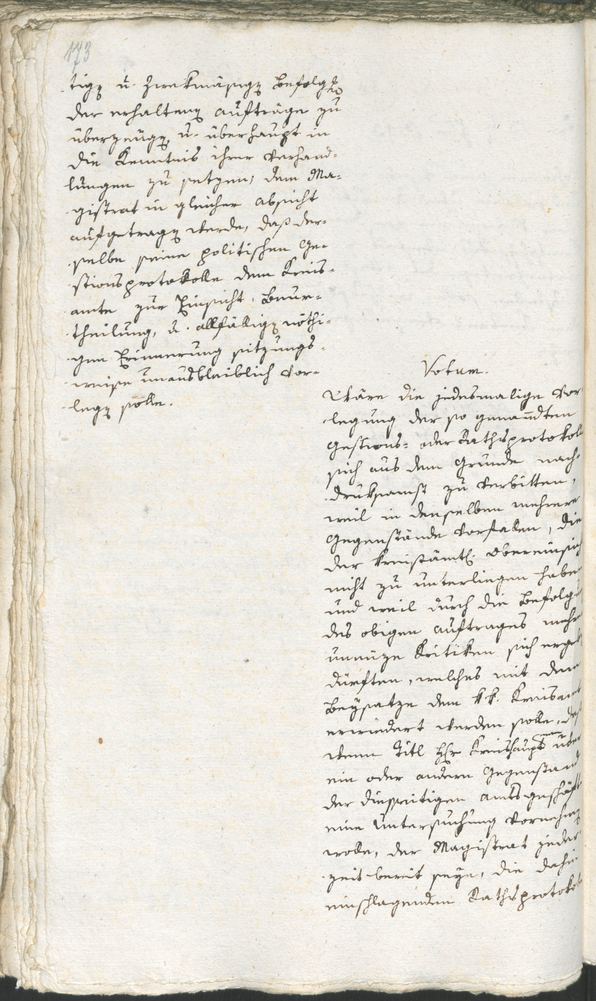 173
tigen u. zwekmäsigen Befolgg
der erhaltenen Aufträge zu
überzeugen, u. überhaupt in
die Kenntnis ihrer Verhand-
lungen zu setzen; dem Ma-
gistrat in gleicher Absicht
aufgetragen werde, daß der-
selbe seine politischen Ge-
stionsprotokolle dem Kreis-
amte zur Einsicht, Beur-
theilung, u. allfäligen nöthi-
gen Erinnerung sitzungs-
weise unausbleiblich vor-
legen solle.
Votum.
Wäre die jedesmalige Vor-
legung der so genannten
Gestions- oder Rathsprotokoll
sich aus dem Grunde nach-
druksamst zu verbitten,
weil in denselben mehrere
Gegenstände vorfalen, die
der kreisämtl. Obereinsicht
nicht zu unterliegen haben
und weil durch die Befolg
des obigen Auftrages mehr
unnüze Kritiken sich ergeb
dürften, welches mit dem
Beysatze dem k.k. Kreisamt
erwiedert werden solle, daß
wenn Titl Hr. Kreishauptmann über
ein oder andern Gegenstand
der diesseitigen Amtsgeschäft
eine Untersuchung vornehmen
wolle, der Magistrat jeder-
zeit bereit seye, die dahin
einschlagenden Rathsprotokol